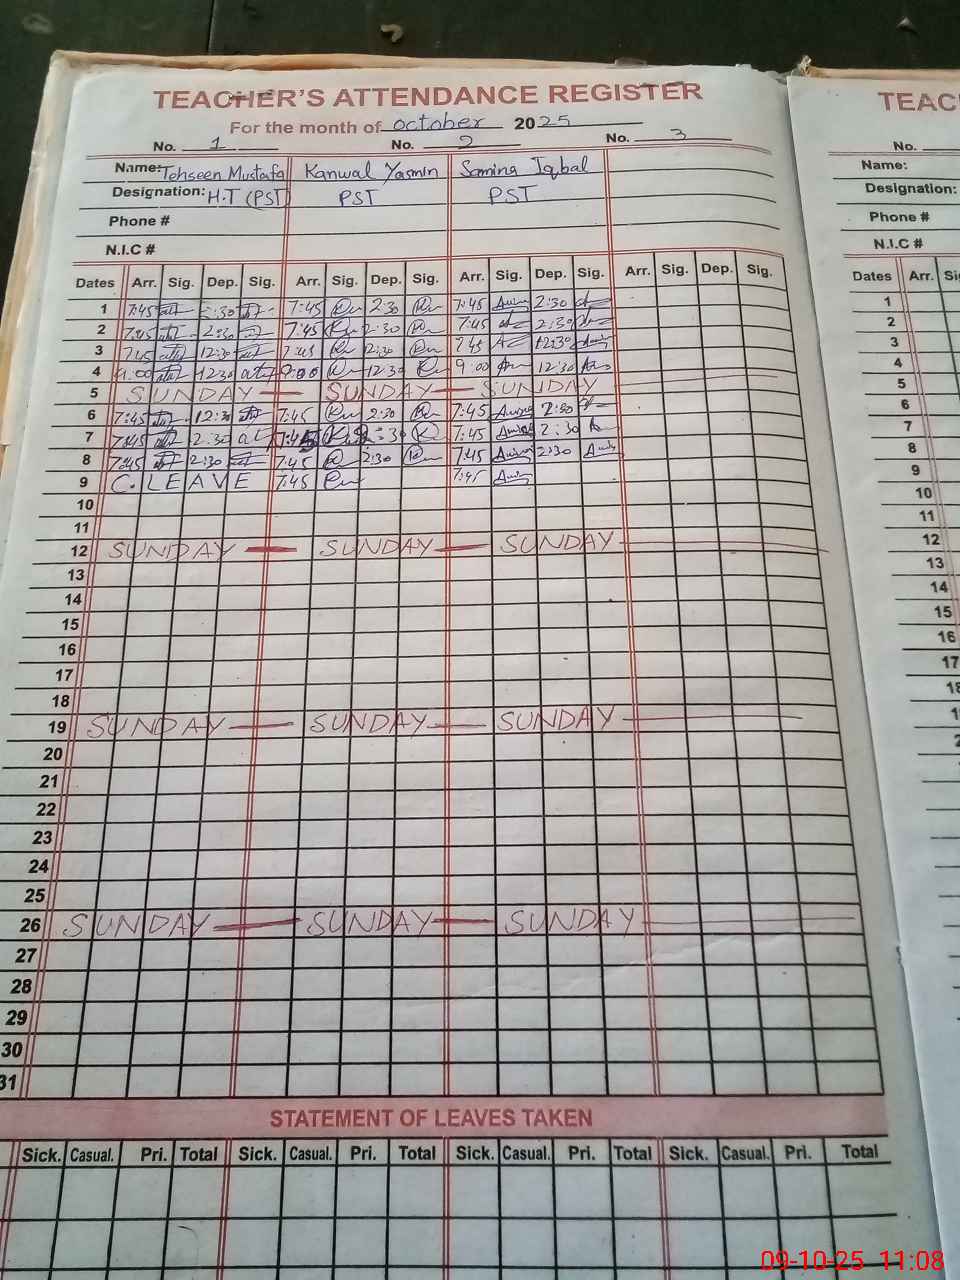 TEACHER'S ATTENDANCE REGISTER
For the month of october 2025
No. 1 No. 2 No. 3
Name: Tehseen Mustafa Kanwal Yasmin Samina Iqbal
Designation: H.T (PST) PST PST
Phone #
N.I.C #
Dates Arr. Sig. Dep. Sig. Arr. Sig. Dep. Sig. Arr. Sig. Dep. Sig. Arr. Sig. Dep. Sig.
1 7:45 2:30 7:45 2:30 7:45 2:30
2 7:45 2:30 7:45 2:30 7:45 2:30
3 7:45 12:30 7:45 12:30 7:45 12:30
4 9:00 12:30 9:00 12:30 9:00 12:30
5 SUNDAY — SUNDAY — SUNDAY
6 7:45 12:30 7:45 2:30 7:45 2:30
7 7:45 2:30 7:45 2:30 7:45 2:30
8 7:45 2:30 7:45 2:30 7:45 2:30
9 C. LEAVE 7:45 7:45
10
11
12 SUNDAY — SUNDAY — SUNDAY
13
14
15
16
17
18
19 SUNDAY — SUNDAY — SUNDAY
20
21
22
23
24
25
26 SUNDAY — SUNDAY — SUNDAY
27
28
29
30
31
STATEMENT OF LEAVES TAKEN
Sick. Casual. Pri. Total Sick. Casual. Pri. Total Sick. Casual. Pri. Total Sick. Casual. Pri. Total
No.
Name:
Designation:
Phone #
N.I.C #
Dates Arr.
1
2
3
4
5
6
7
8
9
10
11
12
13
14
15
16
17
09-10-25 11:08